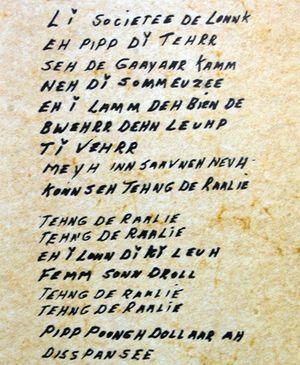 Li SOCIETEE DE LONNK
EH PIPP Di TEHRR
SEH DE GAAYAAR KAMM
NEH Di SOMMEUZEE
EH i LAMM DEH BIEN DE
BWEHRR DEHN LEUHP
Ti VEHRR
MEYH INN SAAVNEH NEUH-
KONNSEH TEHNG DE RAALIE
TEHNG DE RAALIE
TEHNG DE RAALIE
EH i LONN Di Ki LEUH
FEMM SONN DROLL
TEHNG DE RAALIE
TEHNG DE RAALIE
PIPP POONGH DOLLAAR AH
DISSPANSEE